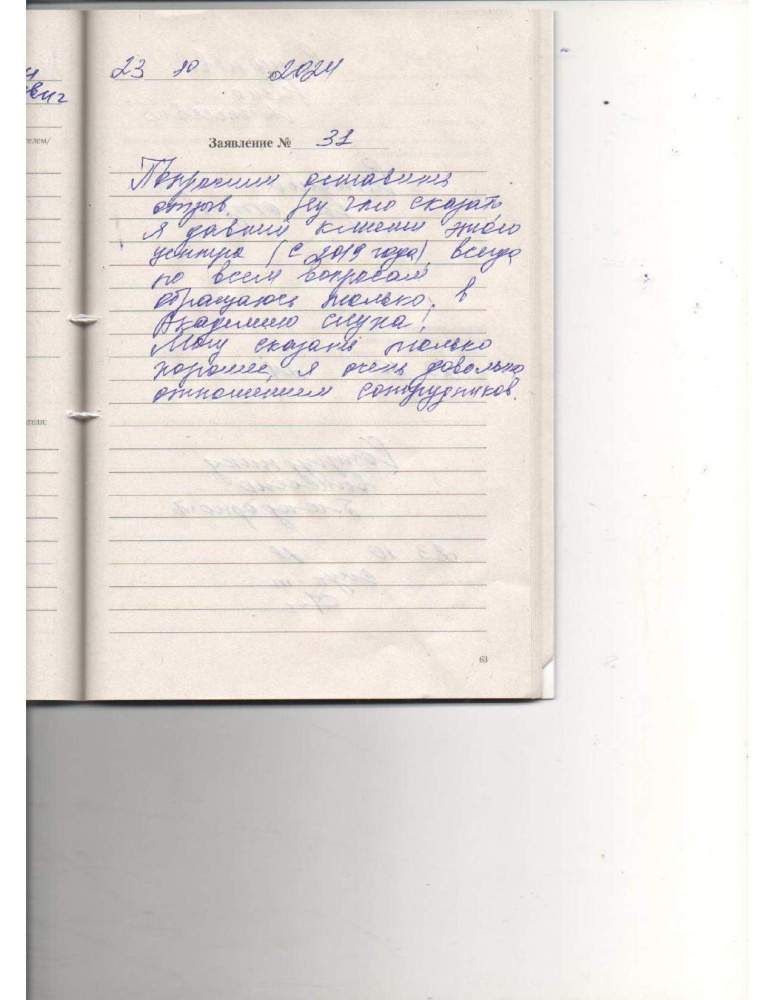 23 10 2024
Заявление № 31
Попросили оставить
отзыв. Ну что сказать
я давний клиент этого
центра (с 2019 года), всегда
по всем вопросам
обращаюсь только в
Академию слуха!
Могу сказать только
хорошее, я очень довольна
отношением сотрудников.
63